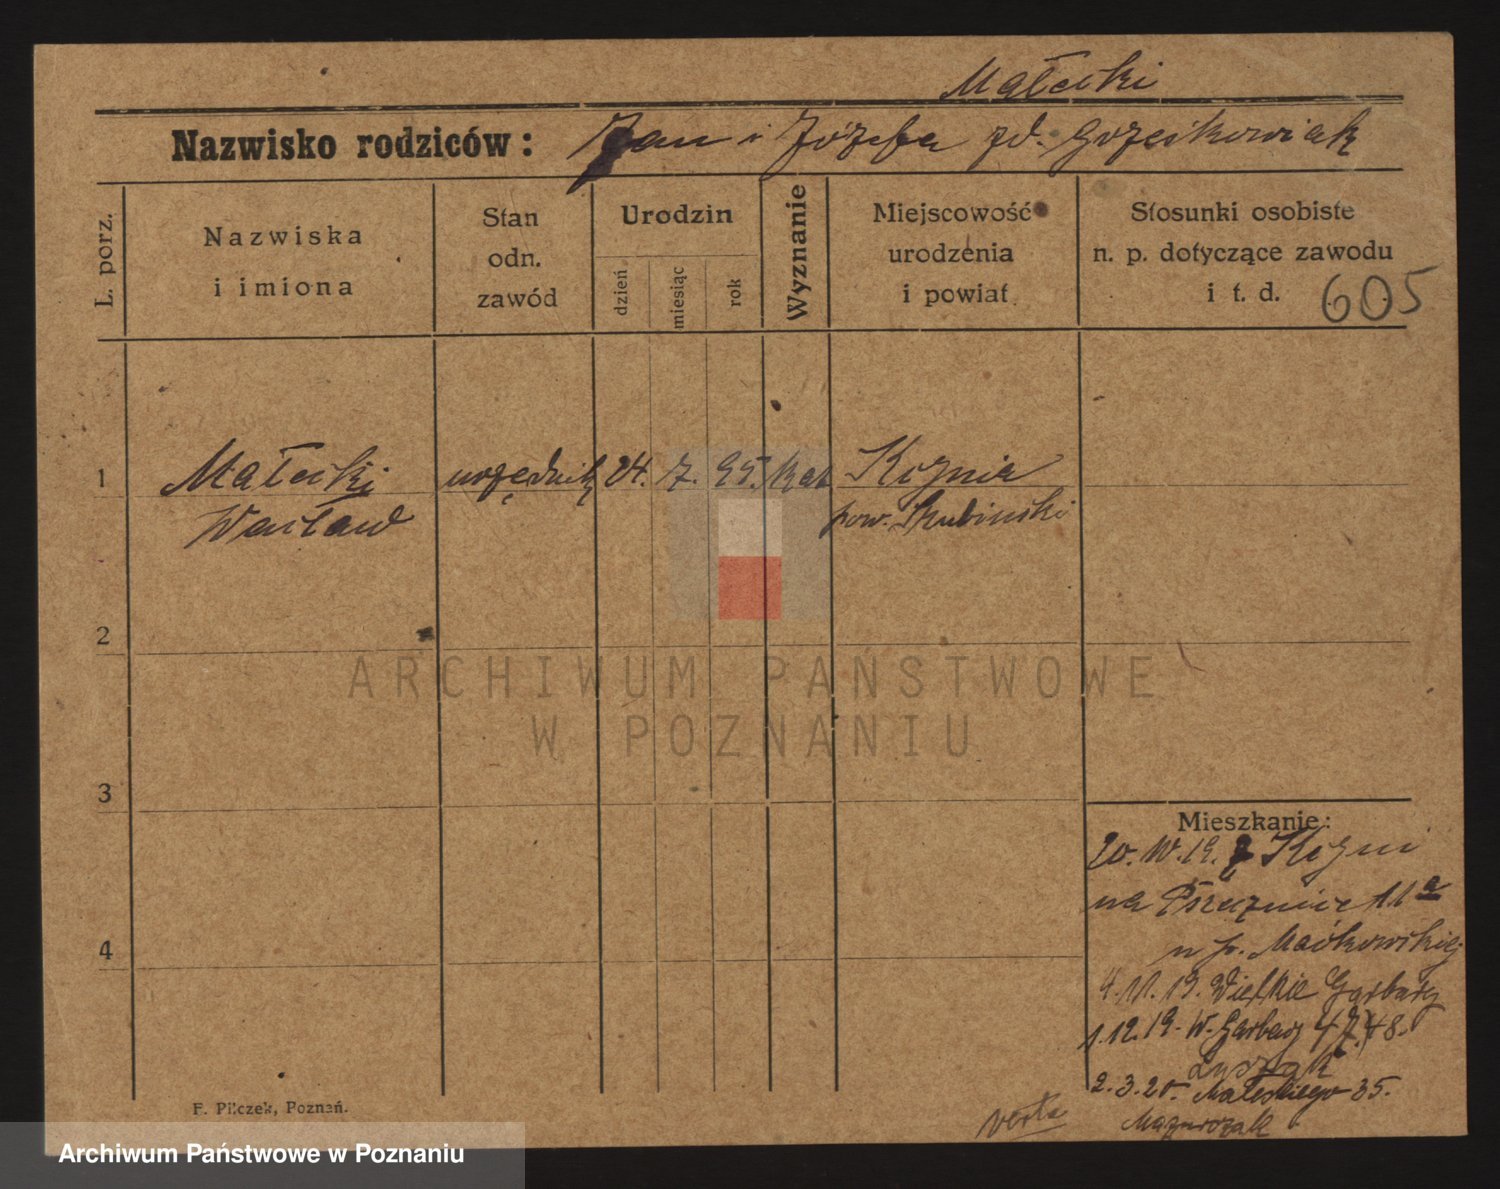 Małecki
Nazwisko rodziców: Jan i Józefa zd. Grześkowiak
L. porz.
Nazwiska
i imiona
Stan
odn.
zawód
Urodzin
dzień
miesiąc
rok
Wyznanie
Miejscowość
urodzenia
i powiat
Stosunki osobiste
n. p. dotyczące zawodu
i t. d.
605
1
Małecki
Wacław
urzędnik
24.
7.
95.
kat
Kcynia
pow. Szubiński
2
3
4
Mieszkanie:
20. 10. 19. z Kcyni
na 11a
u p.
4. 11. 19. Wielkie Garbary
1. 12. 19. W. Garbary 47/48.
2. 3. 20. 35.
Mazurczak
verte
F. Pilczek, Poznań.
ARCHIWUM PAŃSTWOWE
W POZNANIU
Archiwum Państwowe w Poznaniu